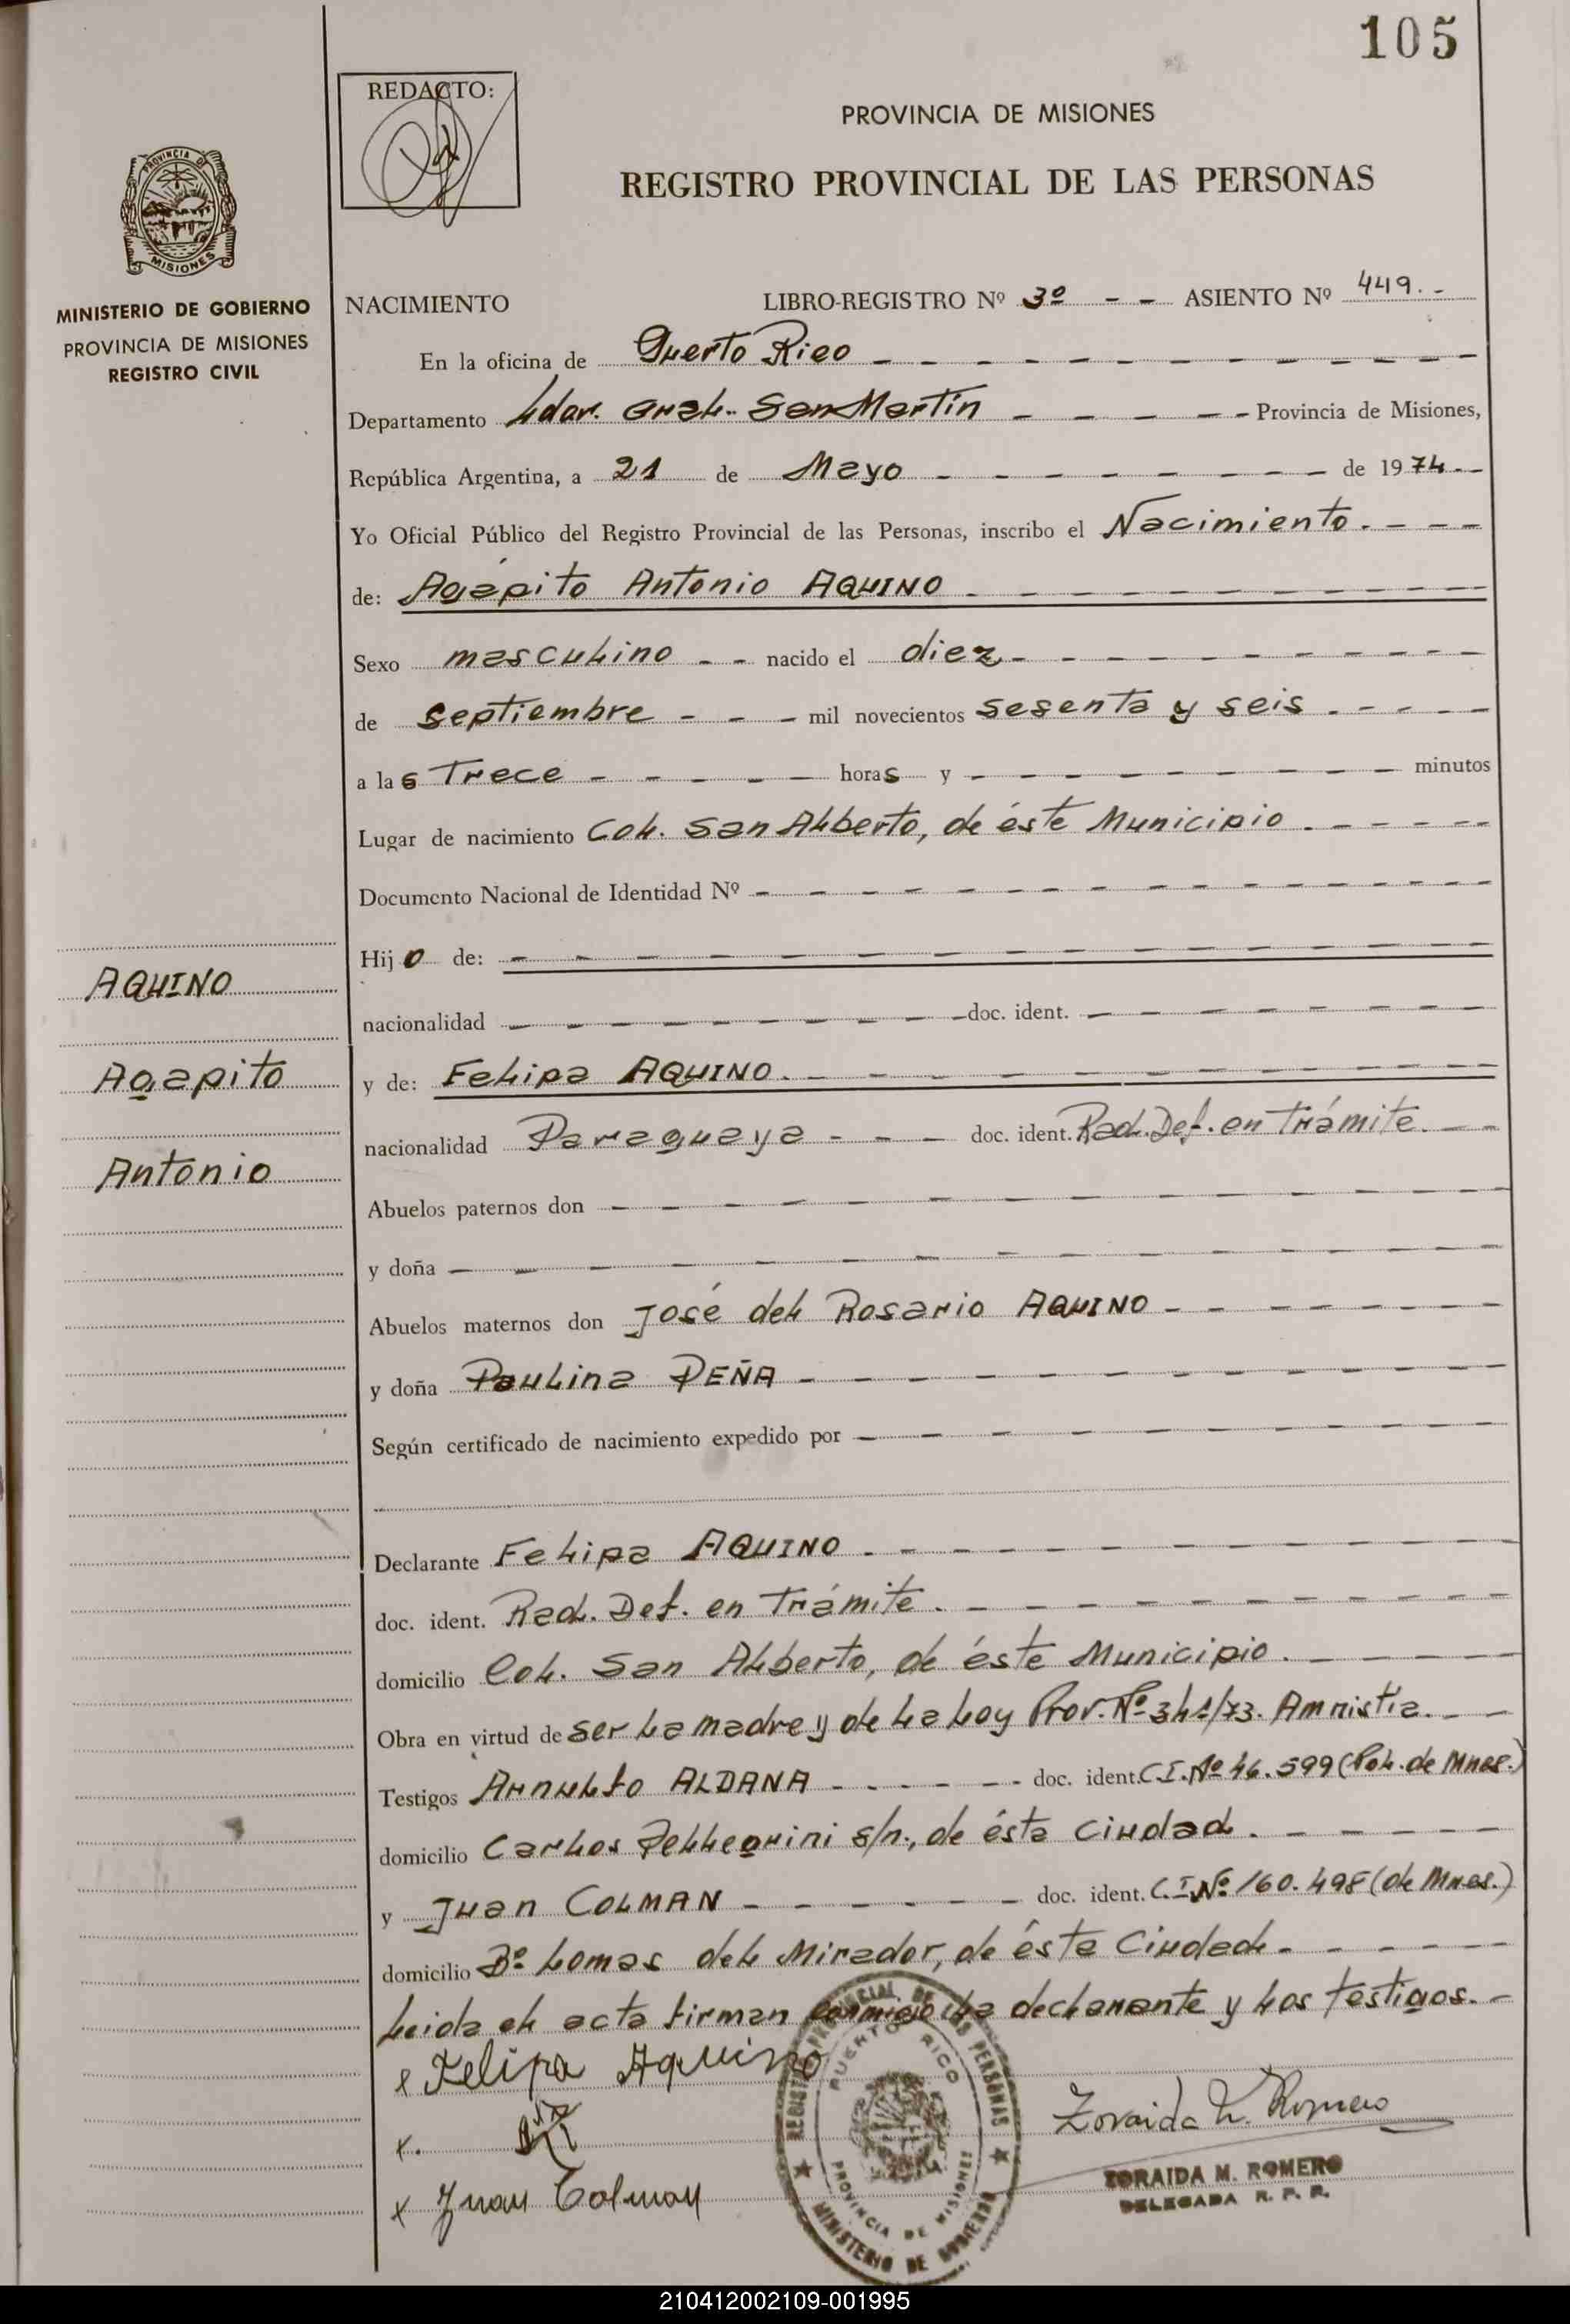 105
REDACTO:
PROVINCIA DE MISIONES
REGISTRO PROVINCIAL DE LAS PERSONAS
PROVINCIA DE
MISIONES
MINISTERIO DE GOBIERNO
PROVINCIA DE MISIONES
REGISTRO CIVIL
NACIMIENTO LIBRO-REGISTRO Nº 3º - - ASIENTO Nº 449. -
En la oficina de Puerto Rico
Departamento Ldor. Gral. San Martín Provincia de Misiones,
República Argentina, a 21 de Mayo de 1974
Yo Oficial Público del Registro Provincial de las Personas, inscribo el Nacimiento.
de: Agápito Antonio AQUINO
Sexo masculino nacido el diez
de septiembre mil novecientos sesenta y seis
a las Trece horas y minutos
Lugar de nacimiento Col. San Alberto, de éste Municipio
Documento Nacional de Identidad Nº
Hijo de:
nacionalidad doc. ident.
y de: Felipa AQUINO.
nacionalidad Paraguaya doc. ident. Rad. Def. en Trámite.
Abuelos paternos don
y doña
Abuelos maternos don José del Rosario AQUINO
y doña Paulina PEÑA
Según certificado de nacimiento expedido por
Declarante Felipa AQUINO
doc. ident. Rad. Def. en Trámite.
domicilio Col. San Alberto, de éste Municipio.
Obra en virtud de ser la madre y de la Ley Prov. Nº 341/73. Amnistia.
Testigos Arnulfo ALDANA doc. ident. C.I. Nº 46.599 (Pol. de Mnes.)
domicilio Carlos Pellegrini s/n., de ésta Ciudad.
y Juan COLMAN doc. ident. C.I. Nº 160.498 (de Mnes.)
domicilio Bº Lomas del Mirador, de ésta Ciudad.
Leida el acta firman conmigo la declarante y los testigos.
x Felipa Aquino
x.
x Juan Colman
AQUINO
Agapito
Antonio
REGISTRO PROVINCIAL DE LAS PERSONAS
PUERTO RICO
PROVINCIA DE MISIONES
MINISTERIO DE GOBIERNO
Zoraida M. Romero
ZORAIDA M. ROMERO
DELEGADA R. P. P.
210412002109-001995